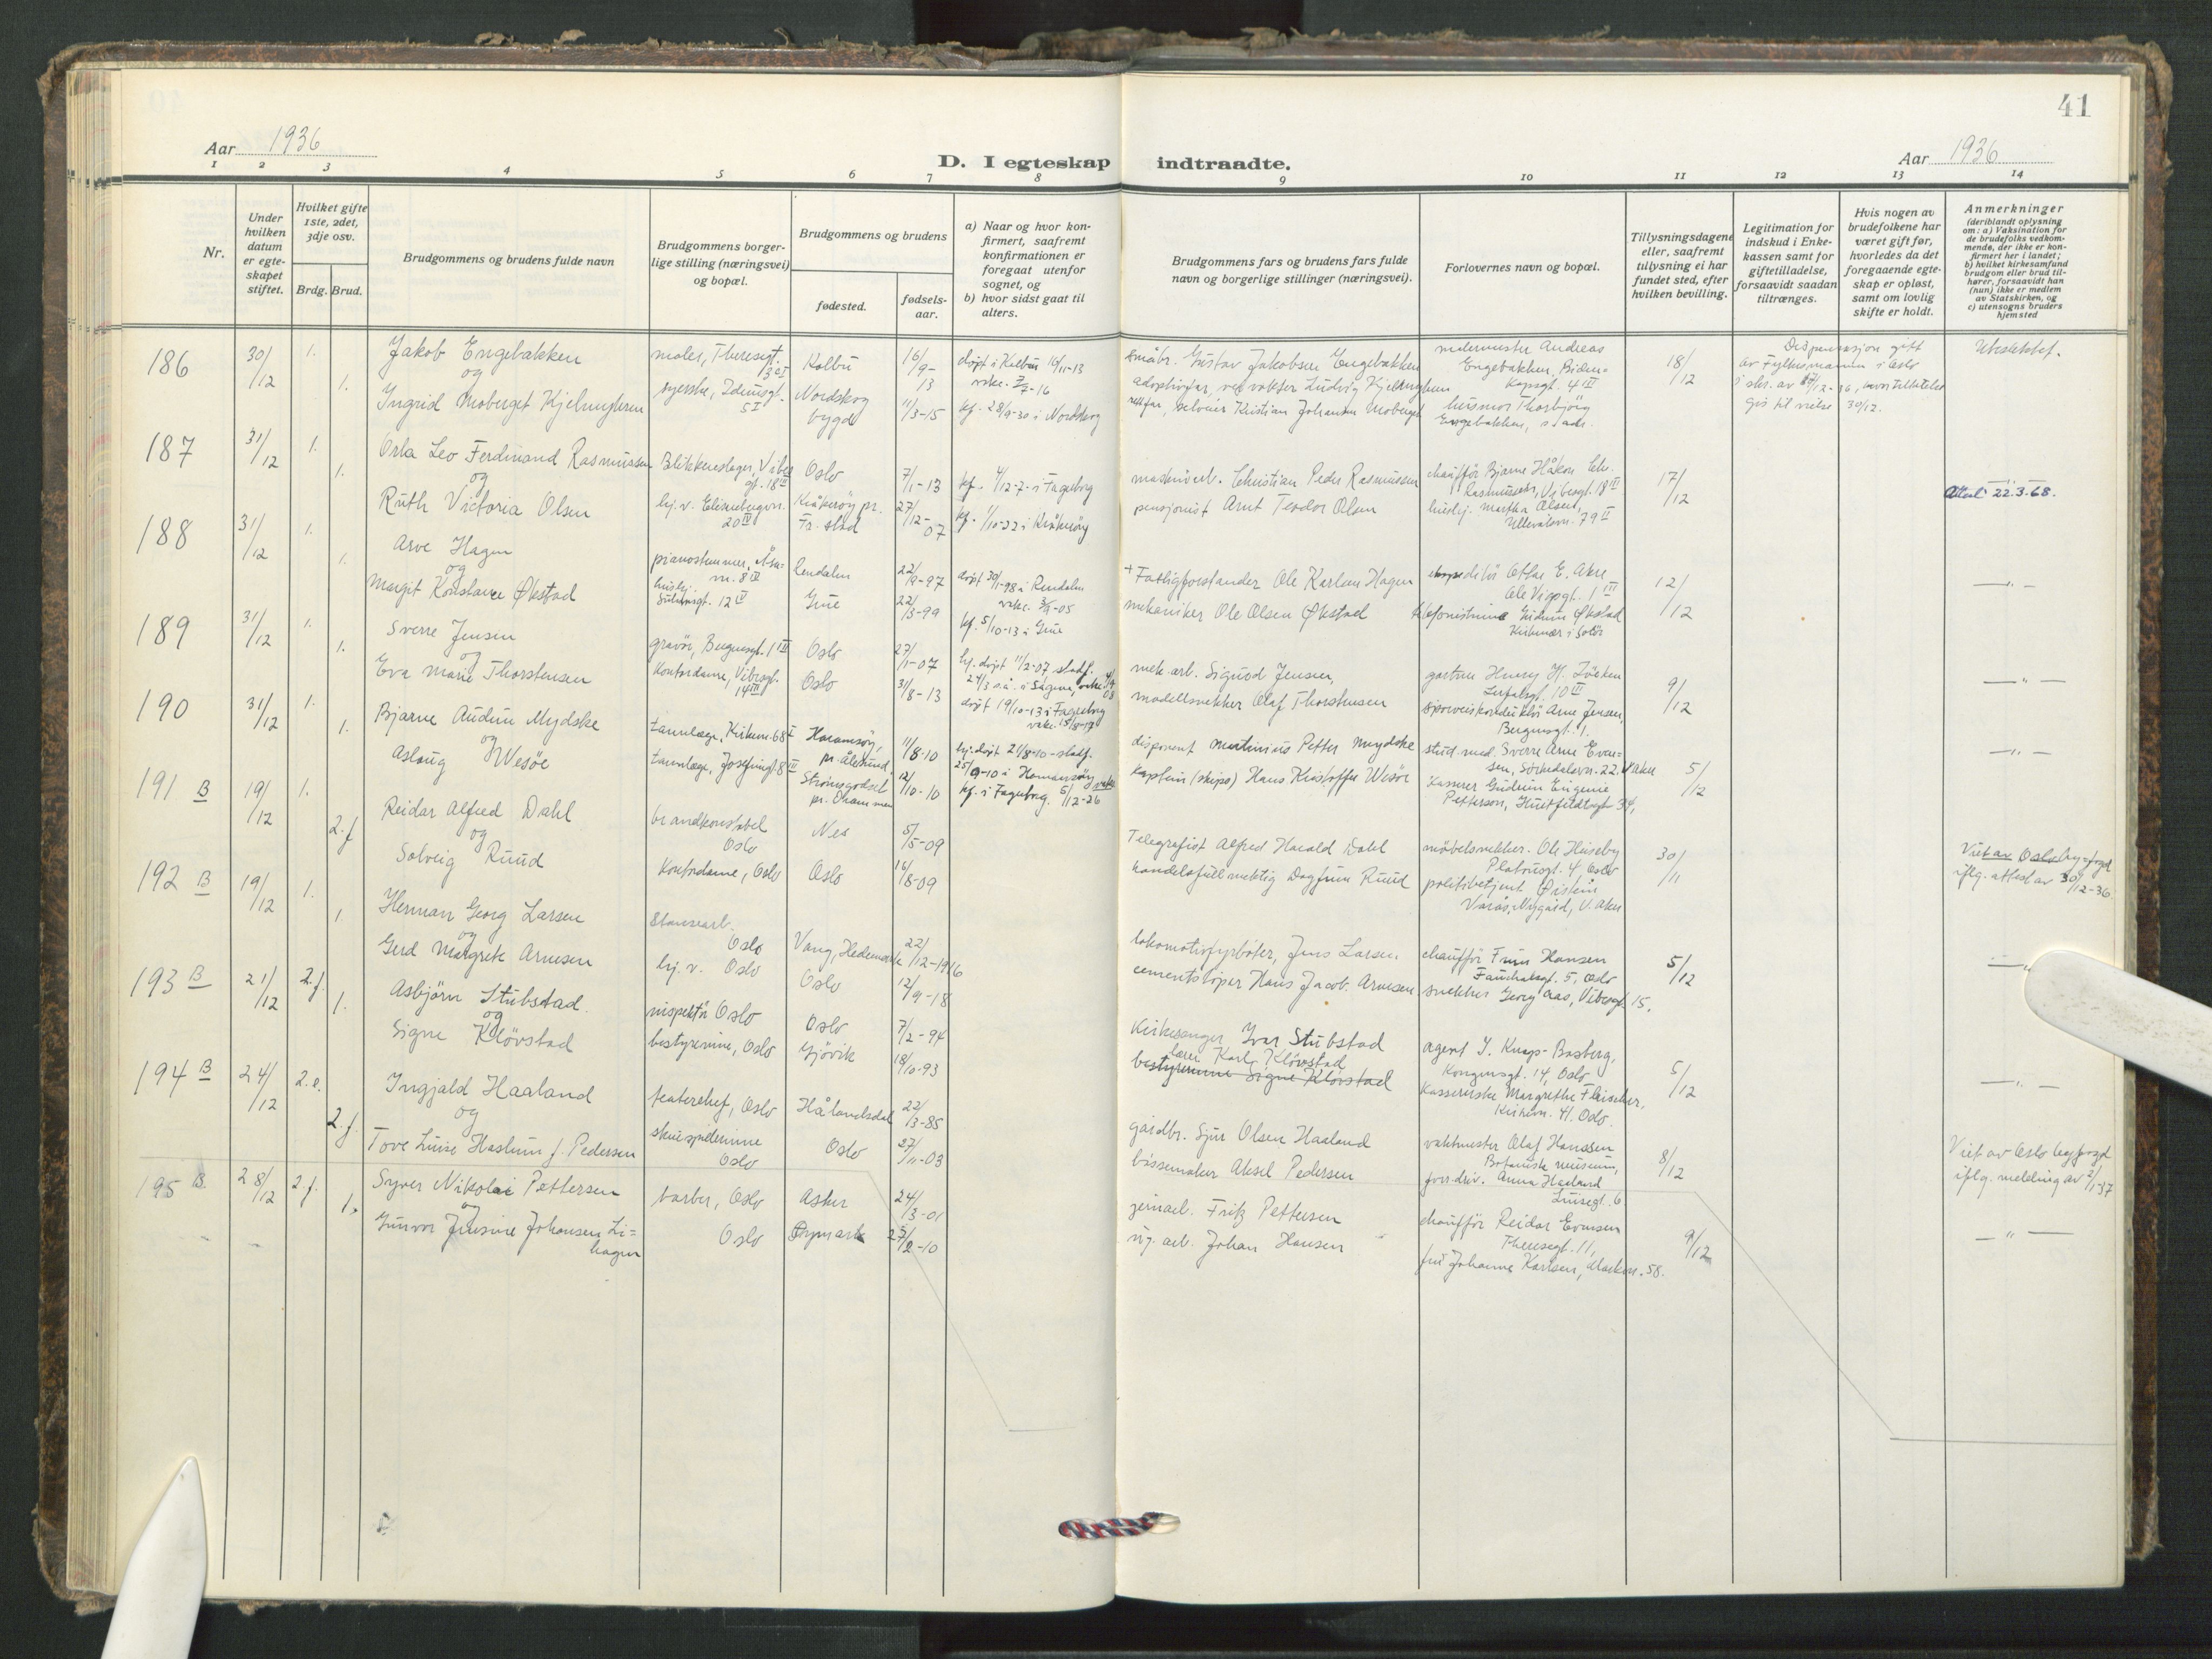 41
Aar 1936
D. I egteskap indtraadte.
Aar 1936
1 2 3 4 5 6 7 8 9 10 11 12 13 14
Nr.
Under hvilken datum er egte-skapet stiftet.
Hvilket gifte 1ste, 2det, 3dje osv.
Brdg. Brud.
Brudgommens og brudens fulde navn
Brudgommens borger-lige stilling (næringsvei) og bopæl.
Brudgommens og brudens
fødested.
fødsels-aar.
a) Naar og hvor kon-firmert, saafremt konfirmationen er foregaat utenfor sognet, og
b) hvor sidst gaat til alters.
Brudgommens fars og brudens fars fulde navn og borgerlige stillinger (næringsvei).
Forlovernes navn og bopæl.
Tillysningsdagene eller, saafremt tillysning ei har fundet sted, efter hvilken bevilling.
Legitimation for indskud i Enke-kassen samt for giftetilladelse, forsaavidt saadan tiltrænges.
Hvis nogen av brudefolkene har været gift før, hvorledes da det foregaaende egte-skap er opløst, samt om lovlig skifte er holdt.
Anmerkninger
(deriblandt oplysning om: a) Vaksination for de brudefolks vedkom-mende, der ikke er kon-firmert her i landet; b) hvilket kirkesamfund brudgom eller brud til-hører, forsaavidt han (hun) ikke er medlem av Statskirken, og c) utensogns bruders hjemsted
186 30/12 1. Jakob Engebakken maler, Theresgt. Kolbu 16/9-13 døpt i Kolbu 16/11-13
og
1. Ingrid Moberget Kjelmyhren syerske, Idunsgt. 5 I Nordskogbygd 11/3-15 kf. 28/9-30 i Nordskog
småbr. Gustav Jakobsen Engebakken
adoptivfar, Ludvig Kjelmyhren
Kristian Johansen Moberget
malermester Andreas Engebakken,
husmor Thorbjörg Engebakken, s. adr.
18/12
Dispensasjon gitt av Fylkesmannen i Oslo
Ubeslektet.
187 31/12 1. Orla Leo Ferdinand Rasmussen Blikkenslager, Vibesgt. 18 III Oslo 7/1-13
og
1. Ruth Victoria Olsen hj. v. Elisenbergvn. 20 IV Kråkerøy pr. Fr.stad 27/12-07 kf. 1/10-22 i Kråkerøy
maskinarb. Christian Peder Rasmussen
pensjonist Arnt Teodor Olsen
chaufför Bjarne Håkon Chr. Rasmussen, Vibesgt. 18 III
huslej. Martha Olsen, Ullevålsvn. 79 II
17/12
Attest 22.3.68.
188 31/12 1. Arve Hagen pianostemmer, 8 IV Rendalen 22/9-97 døpt 30/1-98 i Rendalen
og
1. Margit Konstanse Økstad huslej. 12 V Grue 22/3-99 kf. 5/10-13 i Grue
+ Fattigforstander Ole Karlsen Hagen
mekaniker Ole Olsen Økstad
ekspeditör Ottar E. Akre Ole Vigsgt. 1 III
telefonistinne Gudrun Økstad Kirkenær i Solör
12/12
189 31/12 1. Sverre Jensen gravör, Bergensgt. 1 III Oslo 27/1-07 hj. døpt 11/2-07 stadf.
og
1. Eva Marie Thorstensen Kontordame, Vibesgt. 14 III Oslo 31/8-13 døpt 19/10-13 i Fagerborg
mek. arb. Sigurd Jensen,
modellsnekker Olaf Thorstensen
gartner Henry H. Löcken 10 III
sporveiskonduktör Arne Jensen, Bergensgt. 1.
9/12
190 31/12 1. Bjarne Audun Mydske tannlæge, Kirkevn. 68 I Haramsöy, pr. Ålesund, 11/8-10 hj. døpt 21/8-10 - stadf.
og
1. Aslaug Wesöe tannlæge, Josefinesgt. 8 III Strömsgodset pr. Drammen 12/10-10 kf. i Fagerborg. 5/12-26
disponent Martinius Petter Mydske
Kaptein (skips) Hans Kristoffer Wesöe
stud. med. Sverre Arne Evensen, Sörkedalsvn. 22. V. Aker
Kasserer Gudrun Eugenie Petterson, Huitfeldtsgt. 34,
5/12
191 B 19/12 1. Reidar Alfred Dahl brandkonstabel Oslo Nes 5/5-09
og
2. f. Solveig Ruud Kontordame, Oslo Oslo 16/8-09
Telegrafist Alfred Harald Dahl
handelsfullmektig Dagfinn Ruud
möbelsnekker. Ole Huseby Platousgt. 4, Oslo
politibetjent Øistein Varås, Nygård, V. Aker
30/11
Viet av Oslo byfogd iflg. attest av 30/12-36
192 B 19/12 1. Herman Georg Larsen Stansearb. Oslo Vang, Hedemark 22/12-1916
og
1. Gerd Margrete Arnesen hj. v. Oslo Oslo 12/9-18
lokomotivfyrböter, Jens Larsen
cementstöper Hans Jacob Arnesen
chaufför Finn Hansen Oslo
snekker Georg Aas, Vibesgt. 15.
5/12
193 B 21/12 2. f. Asbjörn Stubstad. inspektör Oslo Oslo 7/2-94
og
1. Signe Klövstad bestyrerinne, Oslo Gjövik 18/10-93
Kirkesanger Ivar Stubstad
lærer Karl Klövstad
bestyrerinne Signe Klövstad
agent I. Knaps-Basberg, Kongensgt. 14, Oslo
Kassererske Margrethe Fleischer, Kirkevn. 41. Oslo.
5/12
194 B 24/12 2. e. Ingjald Haaland teaterchef, Oslo Hålandsdal 22/3-85
og
2. f. Tove Luise Haslum f. Pedersen skuespillerinne Oslo Oslo 27/11-03
gårdbr. Sjur Olsen Haaland
bössemaker Aksel Pedersen
vaktmester Olaf Hanssen Botanisk museum,
forr.driv. Anna Haaland Luisegt. 6
8/12
Viet av Oslo byfogd iflg. melding av 2/1 37
195 B. 28/12 2. f. Syver Nikolai Pettersen barber, Oslo Asker 24/3-01
og
1. Gunvor Jensine Johansen Lihagen Oslo Rygmark 27/2-10
jernarb. Fritz Pettersen
Johan Hansen
chaufför Reidar Evensen Theresegt. 11,
fru Johanne Karlsen, 58.
9/12